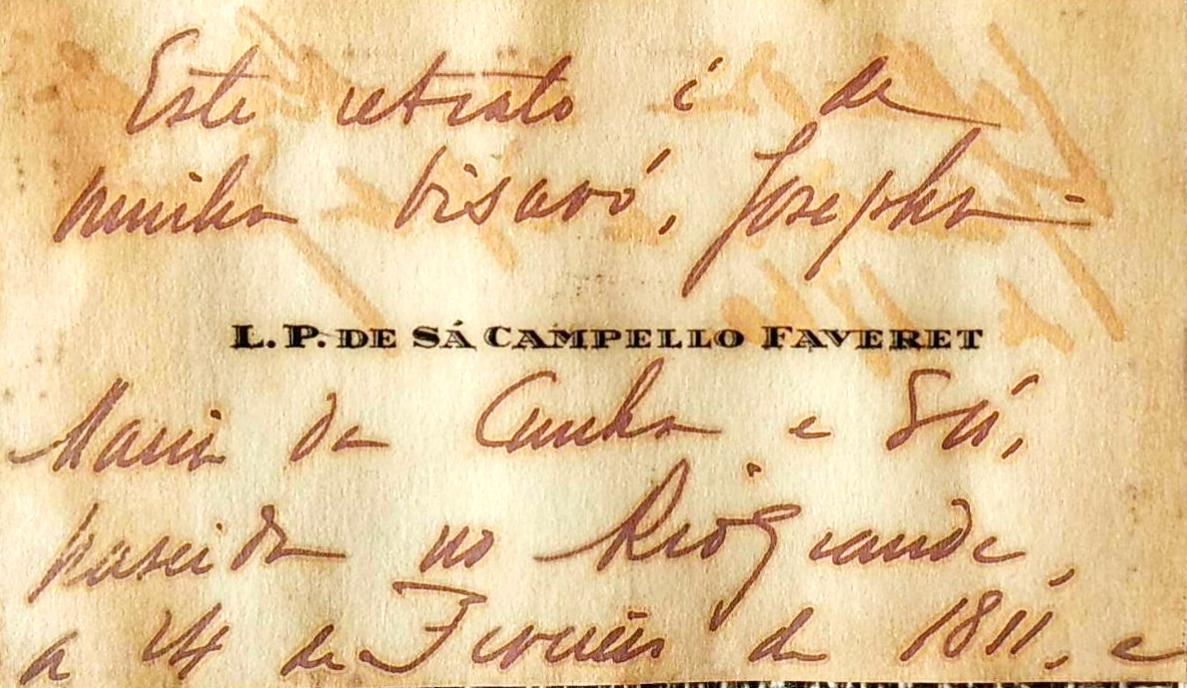 Este retrato é de
minha bisavó, Josepha
L. P. DE SÁ CAMPELLO FAVERET
Maria da Cunha e Sá,
nascida no Rio Grande,
a 24 de Fevereiro de 1811, e